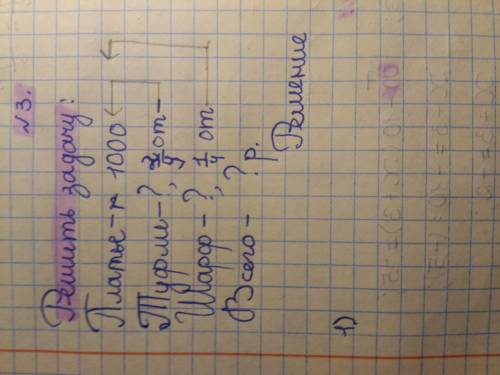 №3.
Решить задачу:
Платье - 1000
Туфли - ?, от
Шарф - ?, 1/4 от
Всего - ? р.
Решение
1)